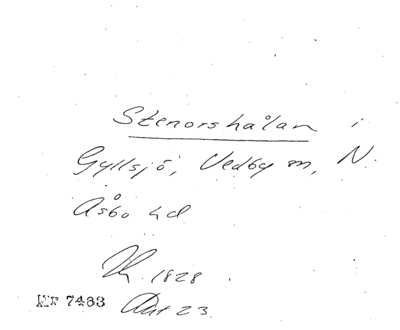 Stenorshålan i
Gyllsjö, Vedby m, N.
Åsbo hd
1828
Nr 7463 23